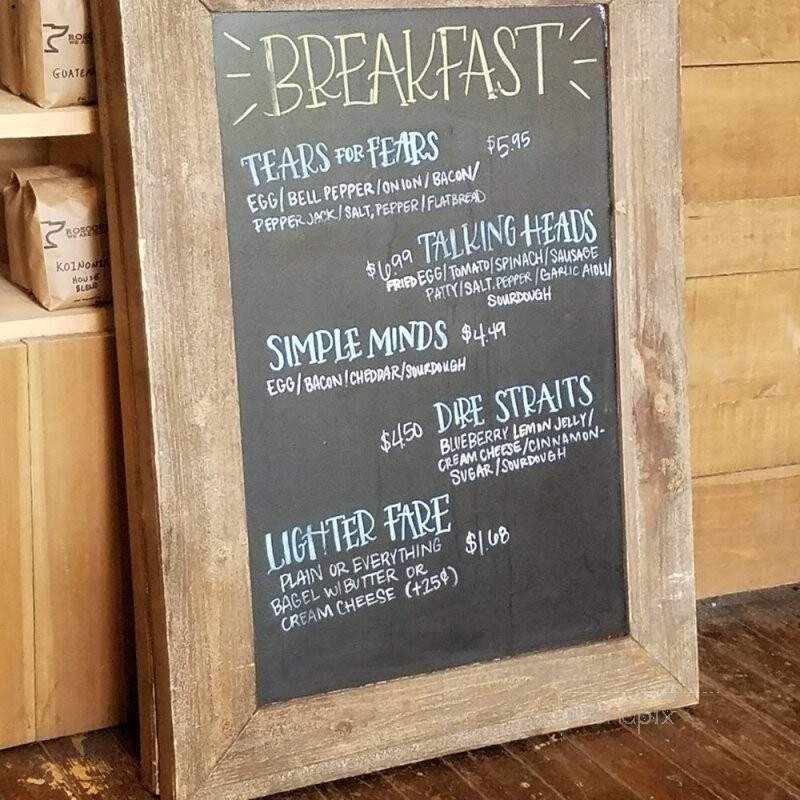 BREAKFAST
TEARS FOR FEARS $5.95
EGG/BELL PEPPER/ONION/BACON/
PEPPER JACK/SALT, PEPPER/FLATBREAD
$6.99 TALKING HEADS
FRIED EGG/TOMATO/SPINACH/SAUSAGE
PATTY/SALT, PEPPER/GARLIC AIOLI/
SOURDOUGH
SIMPLE MINDS $4.49
EGG/BACON/CHEDDAR/SOURDOUGH
$4.50 DIRE STRAITS
BLUEBERRY LEMON JELLY/
CREAM CHEESE/CINNAMON-
SUGAR/SOURDOUGH
LIGHTER FARE $1.68
PLAIN OR EVERYTHING
BAGEL W/BUTTER OR
CREAM CHEESE (+25¢)
KOINONIA
HOUSE
BLEND